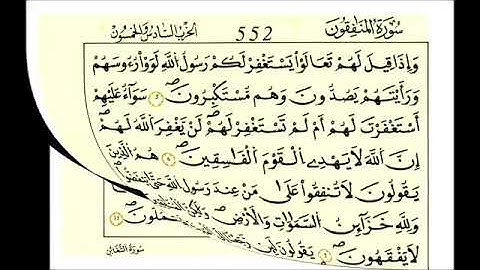 سُورَةُ الْمُنَافِقُونَ 552 الحِزْبُ السَّادِسُ وَالْخَمْسُونَ
وَإِذَا قِيلَ لَهُمْ تَعَالَوْاْ يَسْتَغْفِرْ لَكُمْ رَسُولُ اللَّهِ لَوَوْاْ رُءُوسَهُمْ
وَرَأَيْتَهُمْ يَصُدُّونَ وَهُم مُّسْتَكْبِرُونَ ٥ سَوَآءٌ عَلَيْهِمْ
أَسْتَغْفَرْتَ لَهُمْ أَمْ لَمْ تَسْتَغْفِرْ لَهُمْ لَنْ يَّغْفِرَ اللَّهُ لَهُمْ
إِنَّ اللَّهَ لَا يَهْدِي الْقَوْمَ الْفَاسِقِينَ ٦ هُمُ الَّذِينَ
يَقُولُونَ لَا تُنفِقُواْ عَلَىٰ مَنْ عِندَ رَسُولِ اللَّهِ حَتَّىٰ يَنفَضُّواْ
وَلِلَّهِ خَزَآئِنُ السَّمَاوَاتِ وَالْأَرْضِ وَلَٰكِنَّ
لَا يَفْقَهُونَ يَقُولُونَ لَئِن رَّجَعْنَا
سُورَةُ التَّغَابُنِ